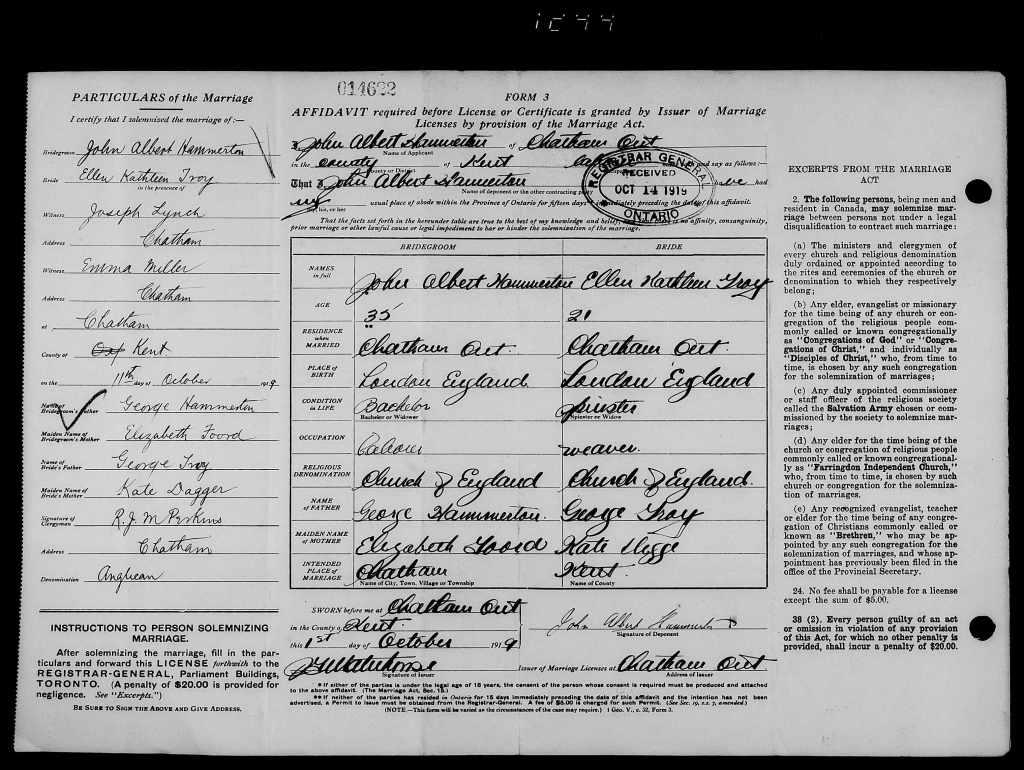 1244
PARTICULARS of the Marriage
I certify that I solemnized the marriage of:—
Bridegroom John Albert Hammerton
Bride Ellen Kathleen Troy
in the presence of
Witness Joseph Lynch
Address Chatham
Witness Emma Miller
Address Chatham
at Chatham
County of Kent
on the 11th day of October 1919
Name of Bridegroom's Father George Hammerton
Maiden Name of Bridegroom's Mother Elizabeth Foord
Name of Bride's Father George Troy
Maiden Name of Bride's Mother Kate Dagger
Signature of Clergyman R. J. M. Perkins
Address Chatham
Denomination Anglican
INSTRUCTIONS TO PERSON SOLEMNIZING
MARRIAGE.
After solemnizing the marriage, fill in the par-
ticulars and forward this LICENSE forthwith to the
REGISTRAR-GENERAL, Parliament Buildings,
TORONTO. (A penalty of $20.00 is provided for
negligence. See "Excerpts.")
BE SURE TO SIGN THE ABOVE AND GIVE ADDRESS.
014622
FORM 3
AFFIDAVIT required before License or Certificate is granted by Issuer of Marriage
Licenses by provision of the Marriage Act.
I, John Albert Hammerton of Chatham Ont
Name of Applicant
in the county of Kent and say as follows:—
County or District
REGISTRAR GENERAL
RECEIVED
OCT 14 1919
ONTARIO
That I John Albert Hammerton have had
Name of deponent or the other contracting party
my usual place of abode within the Province of Ontario for fifteen days immediately preceding the date of this affidavit.
my, his, or her
That the facts set forth in the hereunder table are true to the best of my knowledge and belief, and there is no affinity, consanguinity,
prior marriage or other lawful cause or legal impediment to bar or hinder the solemnization of the marriage.
BRIDEGROOM BRIDE
NAMES in full John Albert Hammerton Ellen Kathleen Troy
AGE 35 21
**
RESIDENCE when MARRIED Chatham Ont. Chatham Ont.
PLACE OF BIRTH London England London England
CONDITION in LIFE Bachelor spinster
Bachelor or Widower Spinster or Widow
OCCUPATION weaver.
RELIGIOUS DENOMINATION Church of England Church of England.
NAME OF FATHER George Hammerton. George Troy
MAIDEN NAME OF MOTHER Elizabeth Foord Kate
INTENDED PLACE OF MARRIAGE Chatham Kent.
Name of City, Town, Village or Township Name of County
SWORN before me at Chatham Ont
in the County of Kent. John Albert Hammerton
Signature of Deponent
this 1st day of October 1919
Issuer of Marriage Licenses at Chatham Ont
Signature of Issuer Address of Issuer
* If either of the parties is under the legal age of 18 years, the consent of the person whose consent is required must be produced and attached
to the above affidavit. (The Marriage Act, Sec. 15.)
** If neither of the parties has resided in Ontario for 15 days immediately preceding the date of this affidavit and the intention has not been
advertised, a Permit to issue must be obtained from the Registrar-General. A fee of $5.00 is charged for such Permit. (See Sec. 19, s.s. 7, amended.)
(NOTE.—This form will be varied as the circumstances of the case may require.) 1 Geo. V., c. 32, Form 3.
EXCERPTS FROM THE MARRIAGE
ACT
2. The following persons, being men and
resident in Canada, may solemnize mar-
riage between persons not under a legal
disqualification to contract such marriage:
(a) The ministers and clergymen of
every church and religious denomination
duly ordained or appointed according to
the rites and ceremonies of the church or
denomination to which they respectively
belong;
(b) Any elder, evangelist or missionary
for the time being of any church or con-
gregation of the religious people com-
monly called or known congregationally
as "Congregations of God" or "Congre-
gations of Christ," and individually as
"Disciples of Christ," who, from time to
time, is chosen by any such congregation
for the solemnization of marriages;
(c) Any duly appointed commissioner
or staff officer of the religious society
called the Salvation Army chosen or com-
missioned by the society to solemnize mar-
riages;
(d) Any elder for the time being of the
church or congregation of religious people
commonly called or known congregational-
ly as "Farringdon Independent Church,"
who, from time to time, is chosen by such
church or congregation for the solemniza-
tion of marriages.
(e) Any recognized evangelist, teacher
or elder for the time being of any congre-
gation of Christians commonly called or
known as "Brethren," who may be ap-
pointed by any such congregation for the
solemnization of marriages, and whose ap-
pointment has previously been filed in the
office of the Provincial Secretary.
24. No fee shall be payable for a license
except the sum of $5.00.
38 (2). Every person guilty of an act
or omission in violation of any provision
of this Act, for which no other penalty is
provided, shall incur a penalty of $20.00.